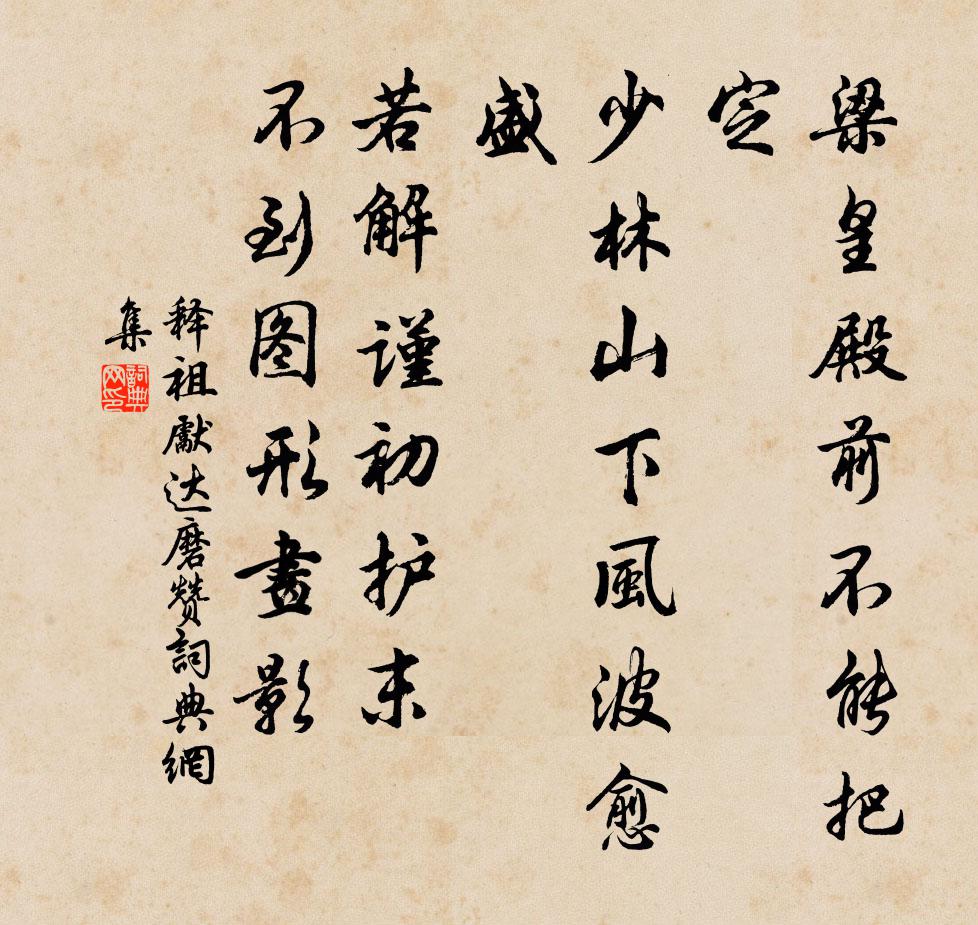 梁皇殿前不能把
定
少林山下風波愈
盛
若解谨初护末
不到图形畫影
释祖獻达磨赞詞典網
集
詞典网印